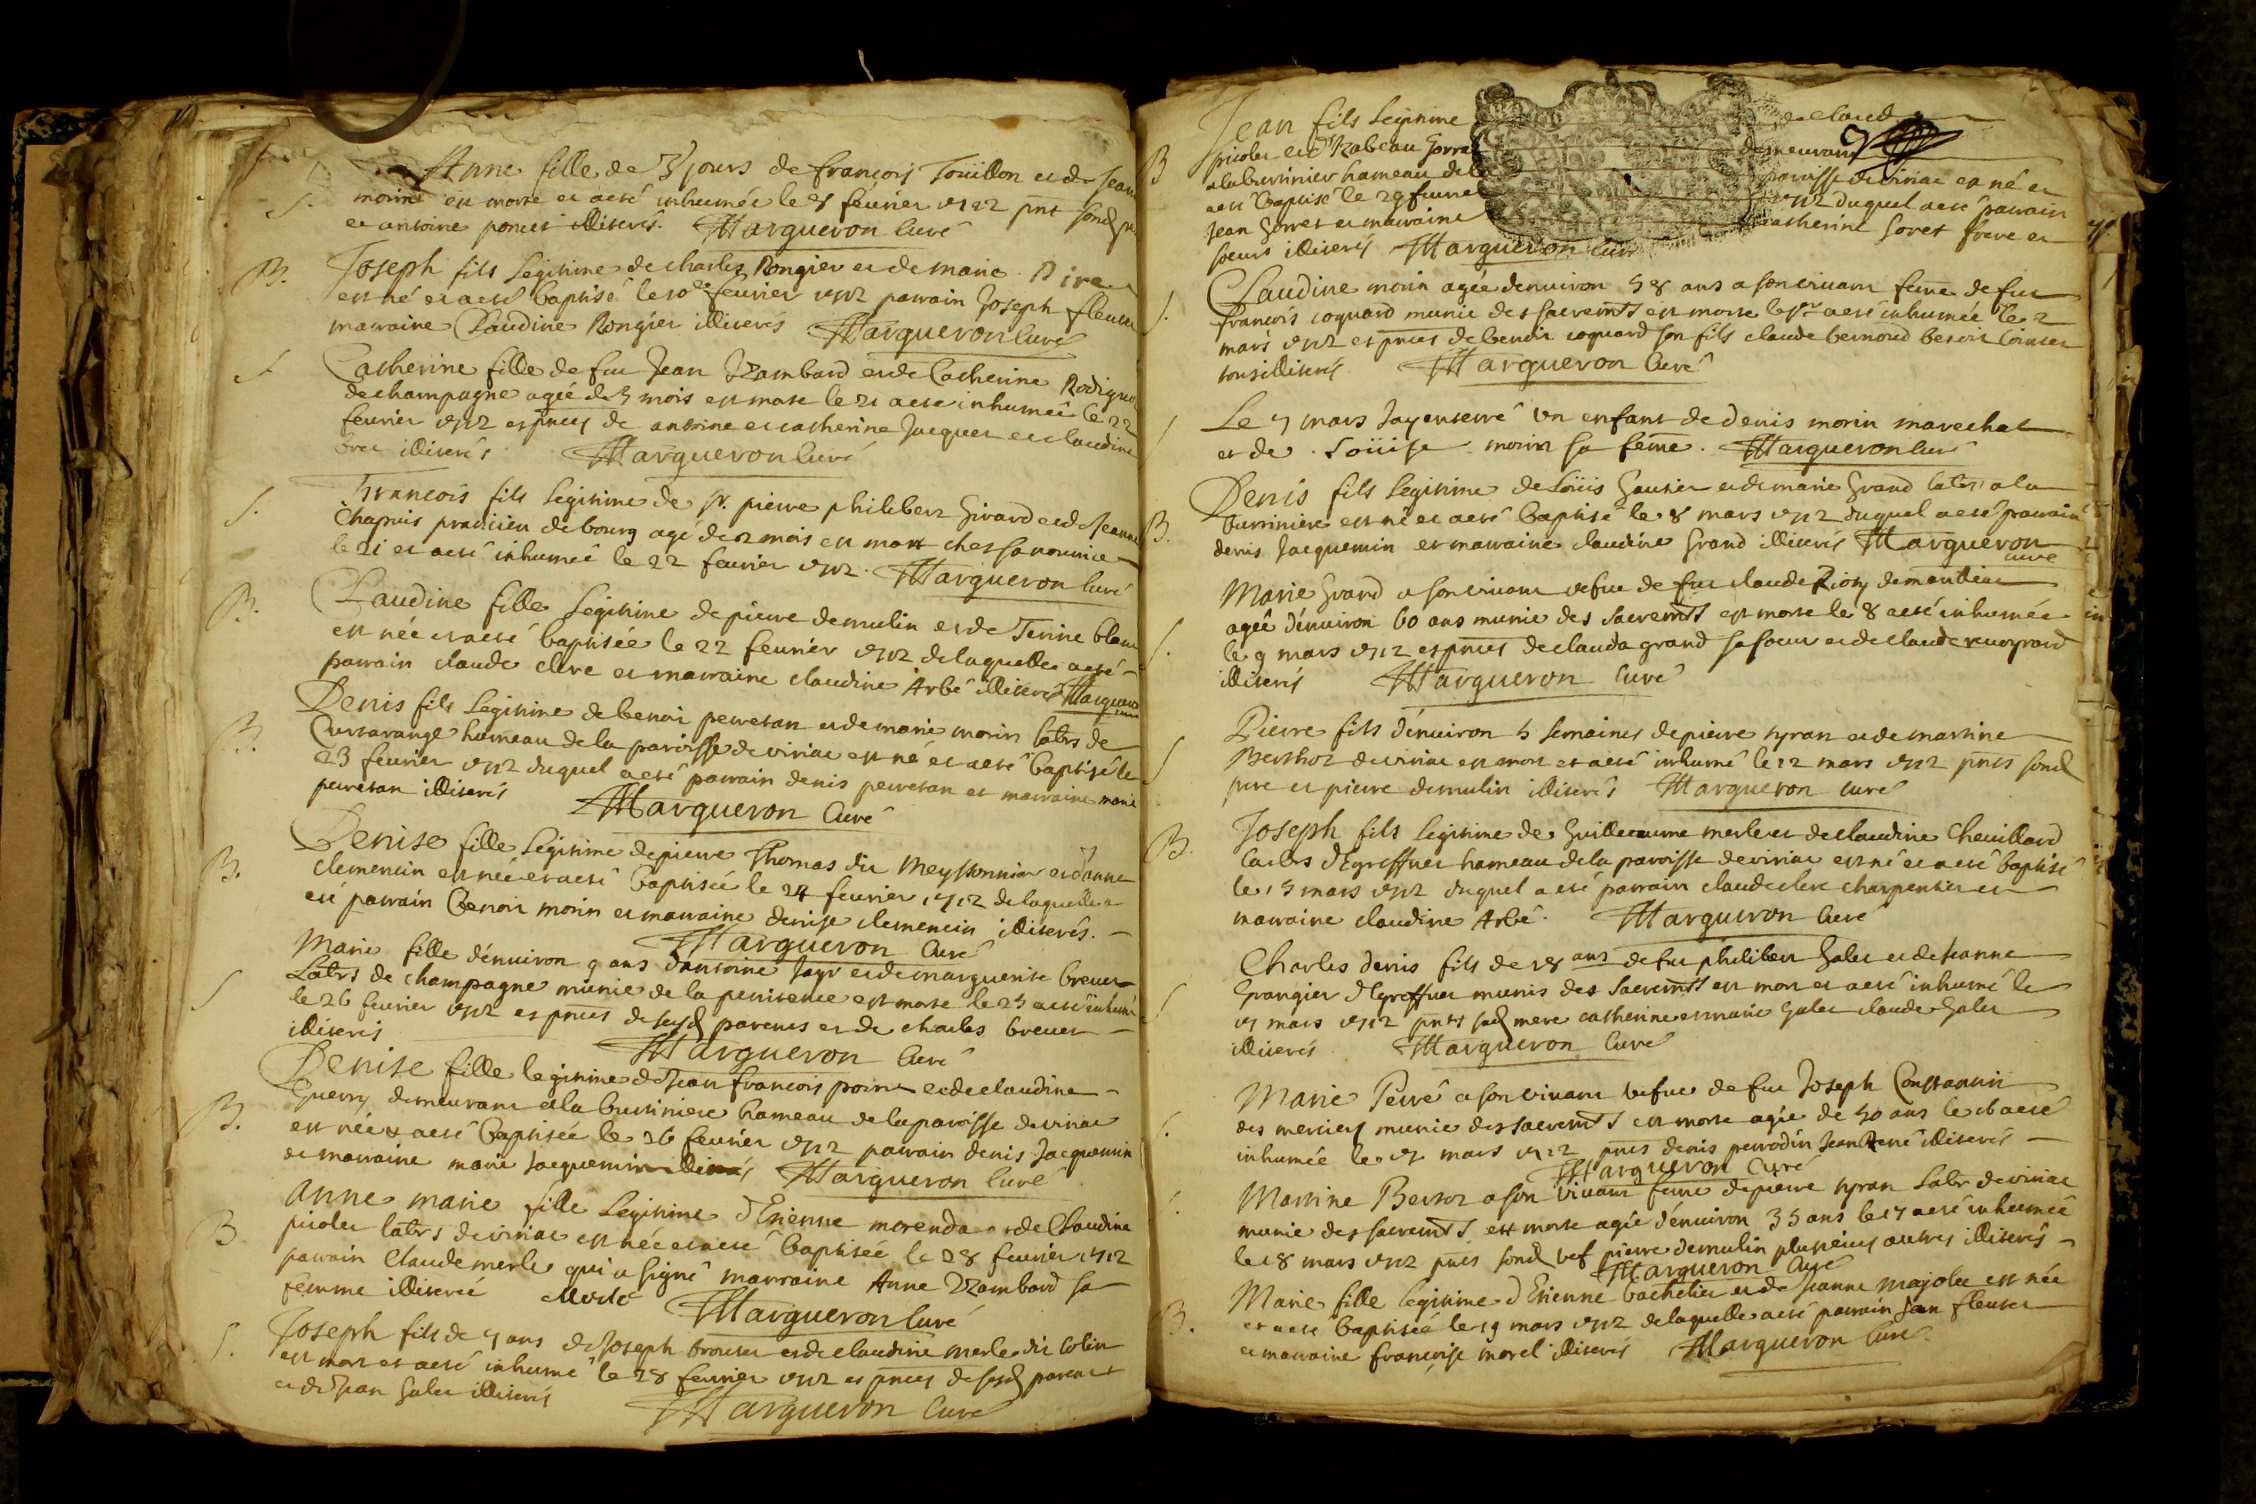 Anne fille de 3 jours de francois Toüillon et de Jean
S. morine est morte et a esté inhumée le 8 février 1712 pnt
et antoine poncet illiterés. Margueron Curé
B. Joseph fils Legitime de charles Rongier et de marie
est né et a esté baptisé le 10e feurier 1712 parrain Joseph fleuret
marraine Claudine Rongier illiterés Margueron Curé
S Catherine fille de feu Jean Dzambard et de Catherine
de champagne agée de 5 mois est morte le 21 a esté inhumée le 22
feurier 1712 es pnces de antoine et catherine Jacquet et claudine
illiterés Margueron Curé
S. Francois fils legitime de sr. pierre philibert Girard et de Jeanne
Chapuis praticien de bourg agé de 2 mois est mort ches sa nourrice
le 21 et a esté inhumée le 22 feurier 1712. Margueron Curé
B. Claudine fille Legitime de pierre demulin et de Tenine blanc
est née et a esté baptisée le 22 feurier 1712 de laquelle a esté
parrain claude clere et marraine claudine Arbé illiterés Margueron
B. Denis fils Legitime de benoit perretan et de marie morin labrs de
Curtarange hameau de la paroisse de viriat est né et a esté baptisé le
23 feurier 1712 duquel a esté parrain denis perretan et marraine marie
perretan illiterés Margueron Curé
B. Denise fille Legitime de pierre Thomas dit Meyssonnier et d'anne
Clementin est née et a esté baptisée le 24 feurier 1712 de laquelle a
esté parrain Benoit morin et marraine denise clementin illiterés.
Margueron Curé
S Marie fille d'enuiron 9 ans d'antoine Jayr et de marguerite breuet
Labrs de champagne munie de la penitence est morte le 25 a esté inhumé
le 26 feurier 1712 es pnces de sesd parents et de charles breuet
illiterés Margueron Curé
B. Denise fille legitime de Jean francois poine et de claudine
Guerry demeurant a la burtiniere hameau de la paroisse de viriat
est née & a esté baptisée le 26 feurier 1712 parrain denis Jacquemin
et marraine marie Jacquemin illiterés Margueron Curé
B Anne marie fille Legitime d'Etienne morenda et de Claudine
picolet labrs de viriat est née et a esté baptisée le 28 feurier 1712
parrain Claude merle qui a signé marraine Anne Dzambard sa
femme illiterée Merle Margueron Curé
S. Joseph fils de 4 ans de Joseph brouter et de claudine merle dit colin
est mort et a esté inhumé le 28 feurier 1712 es pnces de sesd parents
et de Jean Galet illiterés Margueron Curé
Jean fils Legitime de claud
B picolet et d'Izabeau Gorret demeurant
a la burtinier hameau de la paroisse de viriat est né et
a esté baptisé le 29 feurier 1712 duquel a esté parrain
Jean Gorret et marraine catherine Goret frere et
soeurs illiterés Margueron Curé
S. Claudine morin agée d'enuiron 58 ans a son viuant feme de feu
francois coquard munie des sacremts est morte le 1er a esté inhumée le 2
mars 1712 es pnces de benoit coquard son fils claude bernoud benoit
tous illiterés Margueron Curé
Le 4 mars Jay enterré un enfant de denis morin marechal
et de Loüise morin sa feme. Margueron Curé
B. Denis fils legitime de Loüis Gautier et de marie Grand labrs a la
burtiniere est né et a esté baptisé le 8 mars 1712 duquel a esté parrain
denis Jacquemin et marraine claudine Grand illiterés Margueron
curé
S. Marie Grand a son viuant vefue de feu claude
agée d'enuiron 60 ans munie des sacremts est morte le 8 a esté inhumée
le 9 mars 1712 es pnces de clauda grand sa soeur et de claude
illiterés Margueron Curé
S Pierre fils d'enuiron 5 semaines de pierre tyran et de martine
Berthoz de viriat est mort et a esté inhumé le 12 mars 1712 pnts sond
pere et pierre demulin illiterés Margueron curé
B. Joseph fils legitime de Guillaume merle et de claudine Cheuillard
labrs d'Egreffuet hameau de la paroisse de viriat est né et a esté baptisé
le 15 mars 1712 duquel a esté parrain claude clere charpentier et
marraine claudine Arbé. Margueron Curé
S Charles denis fils de 28 ans de feu philibert Galet et de Jeanne
Grangier d'Egreffuet munis des sacremts est mort et a esté inhumé le
17 mars 1712 pnts sad mere catherine et marie Galet claude Galet
illiterés Margueron Curé
S. Marie Perré a son viuant vefue de feu Joseph Constantin
des merciers munie des sacremts est morte agée de 50 ans le 16 a esté
inhumée le 17 mars 1712 pnts denis perrodin Jean illiterés
Margueron Curé
S. Martine Bertoz a son viuant feme de pierre tyran Labr de viriat
munie des sacremts est morte agée d'enuiron 35 ans le 17 a esté inhumée
le 18 mars 1712 pnts sond vef pierre demulin plusieurs autres illiterés
Margueron Curé
B. Marie fille legitime d'Etienne bachelier et de Jeanne majolet est née
et a esté baptisée le 19 mars 1712 de laquelle a esté parrain Jean fleuret
et marraine francoise morel illiterés Margueron Curé